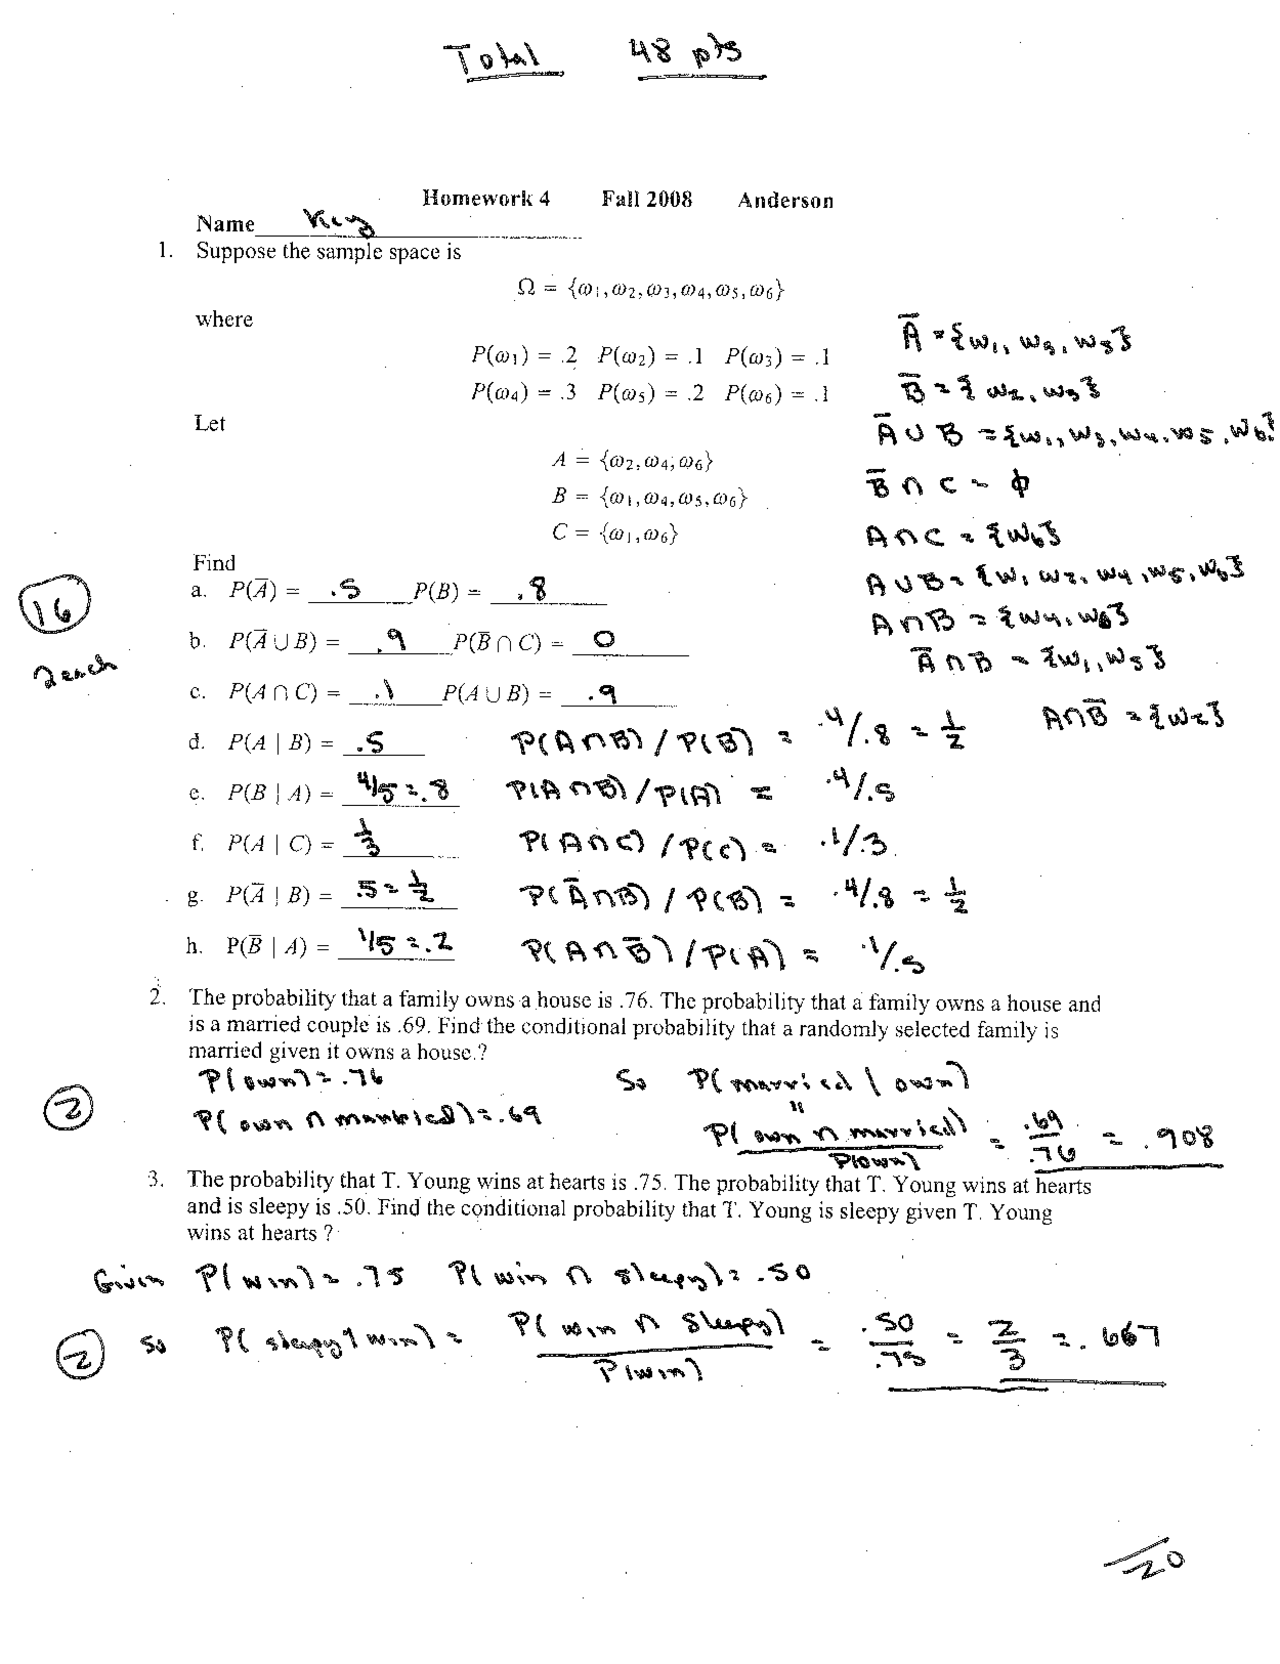 Total 48 pts
Homework 4 Fall 2008 Anderson
Name Key
1. Suppose the sample space is
Ω = {ω1, ω2, ω3, ω4, ω5, ω6}
where
P(ω1) = .2 P(ω2) = .1 P(ω3) = .1
P(ω4) = .3 P(ω5) = .2 P(ω6) = .1
Let
A = {ω2, ω4, ω6}
B = {ω1, ω4, ω5, ω6}
C = {ω1, ω6}
A̅ = {w1, w3, w5}
B̅ = {w2, w3}
A̅ ∪ B = {w1, w3, w4, w5, w6}
B̅ ∩ C = ϕ
A ∩ C = {w6}
A ∪ B = {w1 w2, w4, w5, w6}
A ∩ B = {w4, w6}
A̅ ∩ B = {w1, w5}
A ∩ B̅ = {w2}
Find
16
2 each
a. P(A̅) = .5 P(B) = .8
b. P(A̅ ∪ B) = .9 P(B̅ ∩ C) = 0
c. P(A ∩ C) = .1 P(A ∪ B) = .9
d. P(A | B) = .5 P(A ∩ B) / P(B) = .4/.8 = 1/2
e. P(B | A) = 4/5 = .8 P(A ∩ B) / P(A) = .4/.5
f. P(A | C) = 1/3 P(A ∩ C) / P(C) = .1/.3
g. P(A̅ | B) = .5 = 1/2 P(A̅ ∩ B) / P(B) = .4/.8 = 1/2
h. P(B̅ | A) = 1/5 = .2 P(A ∩ B̅) / P(A) = .1/.5
2. The probability that a family owns a house is .76. The probability that a family owns a house and
is a married couple is .69. Find the conditional probability that a randomly selected family is
married given it owns a house.?
P(own) = .76 So P(married | own)
2 P(own ∩ married) = .69 = P(own ∩ married) / P(own) = .69/.76 = .908
3. The probability that T. Young wins at hearts is .75. The probability that T. Young wins at hearts
and is sleepy is .50. Find the conditional probability that T. Young is sleepy given T. Young
wins at hearts ?
Given P(win) = .75 P(win ∩ sleepy) = .50
2 So P(sleepy | win) = P(win ∩ sleepy) / P(win) = .50/.75 = 2/3 = .667
/20